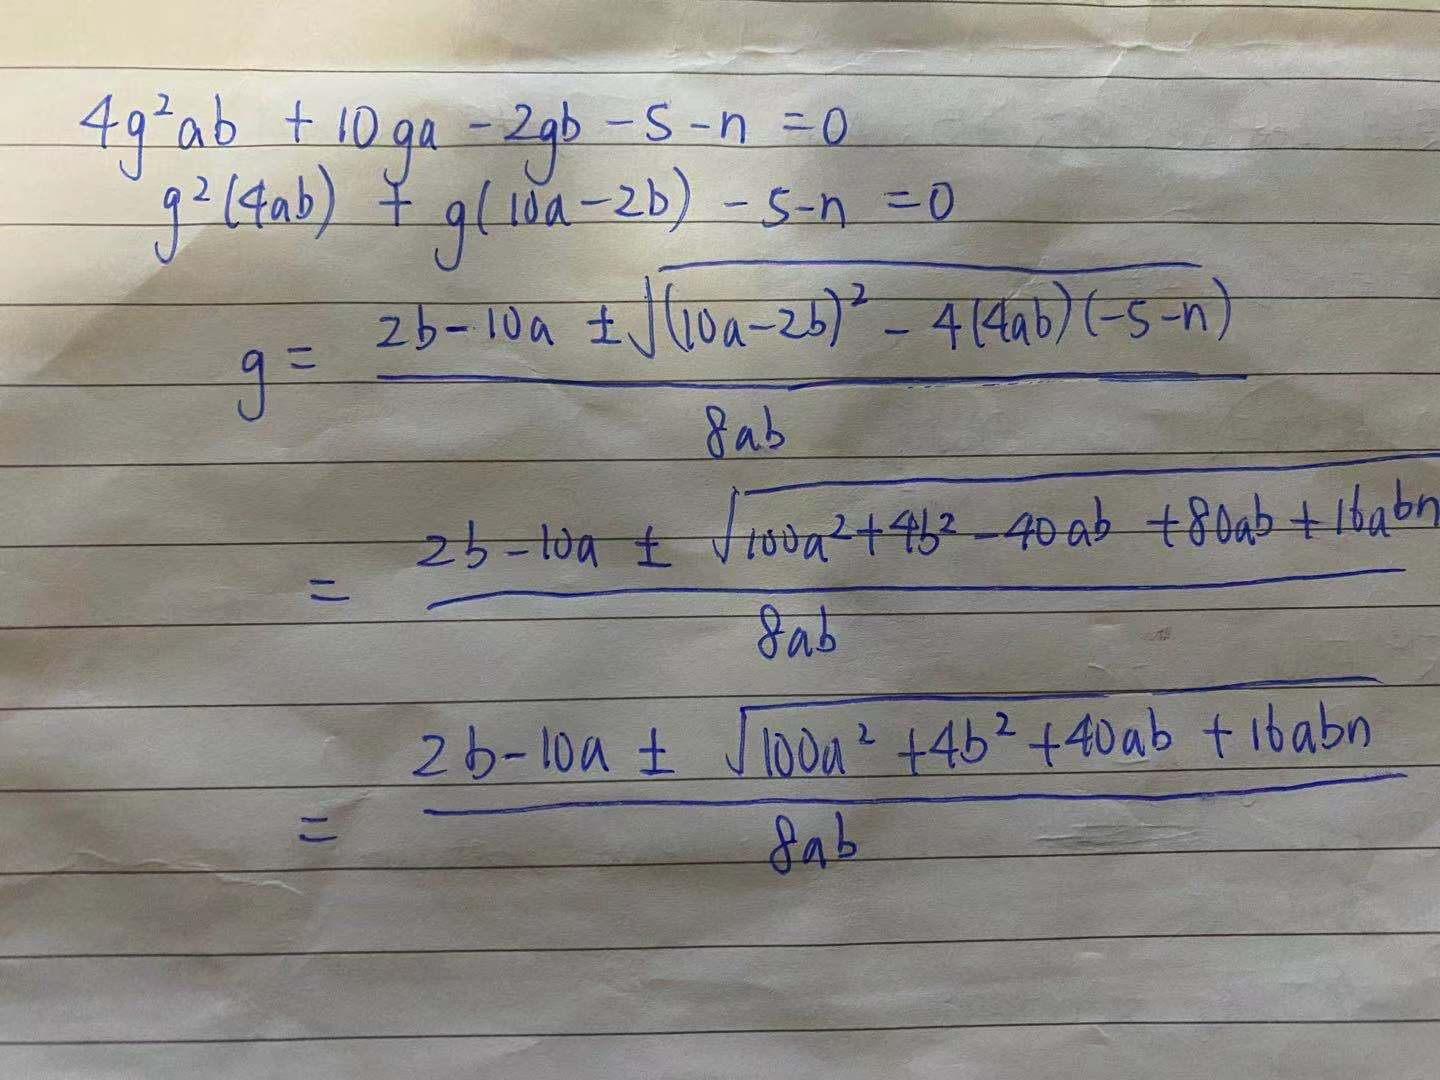 4g²ab + 10ga - 2gb - 5 - n = 0
g²(4ab) + g(10a - 2b) - 5 - n = 0
g = (2b - 10a ± √((10a - 2b)² - 4(4ab)(-5 - n))) / 8ab
= (2b - 10a ± √(100a² + 4b² - 40ab + 80ab + 16abn)) / 8ab
= (2b - 10a ± √(100a² + 4b² + 40ab + 16abn)) / 8ab